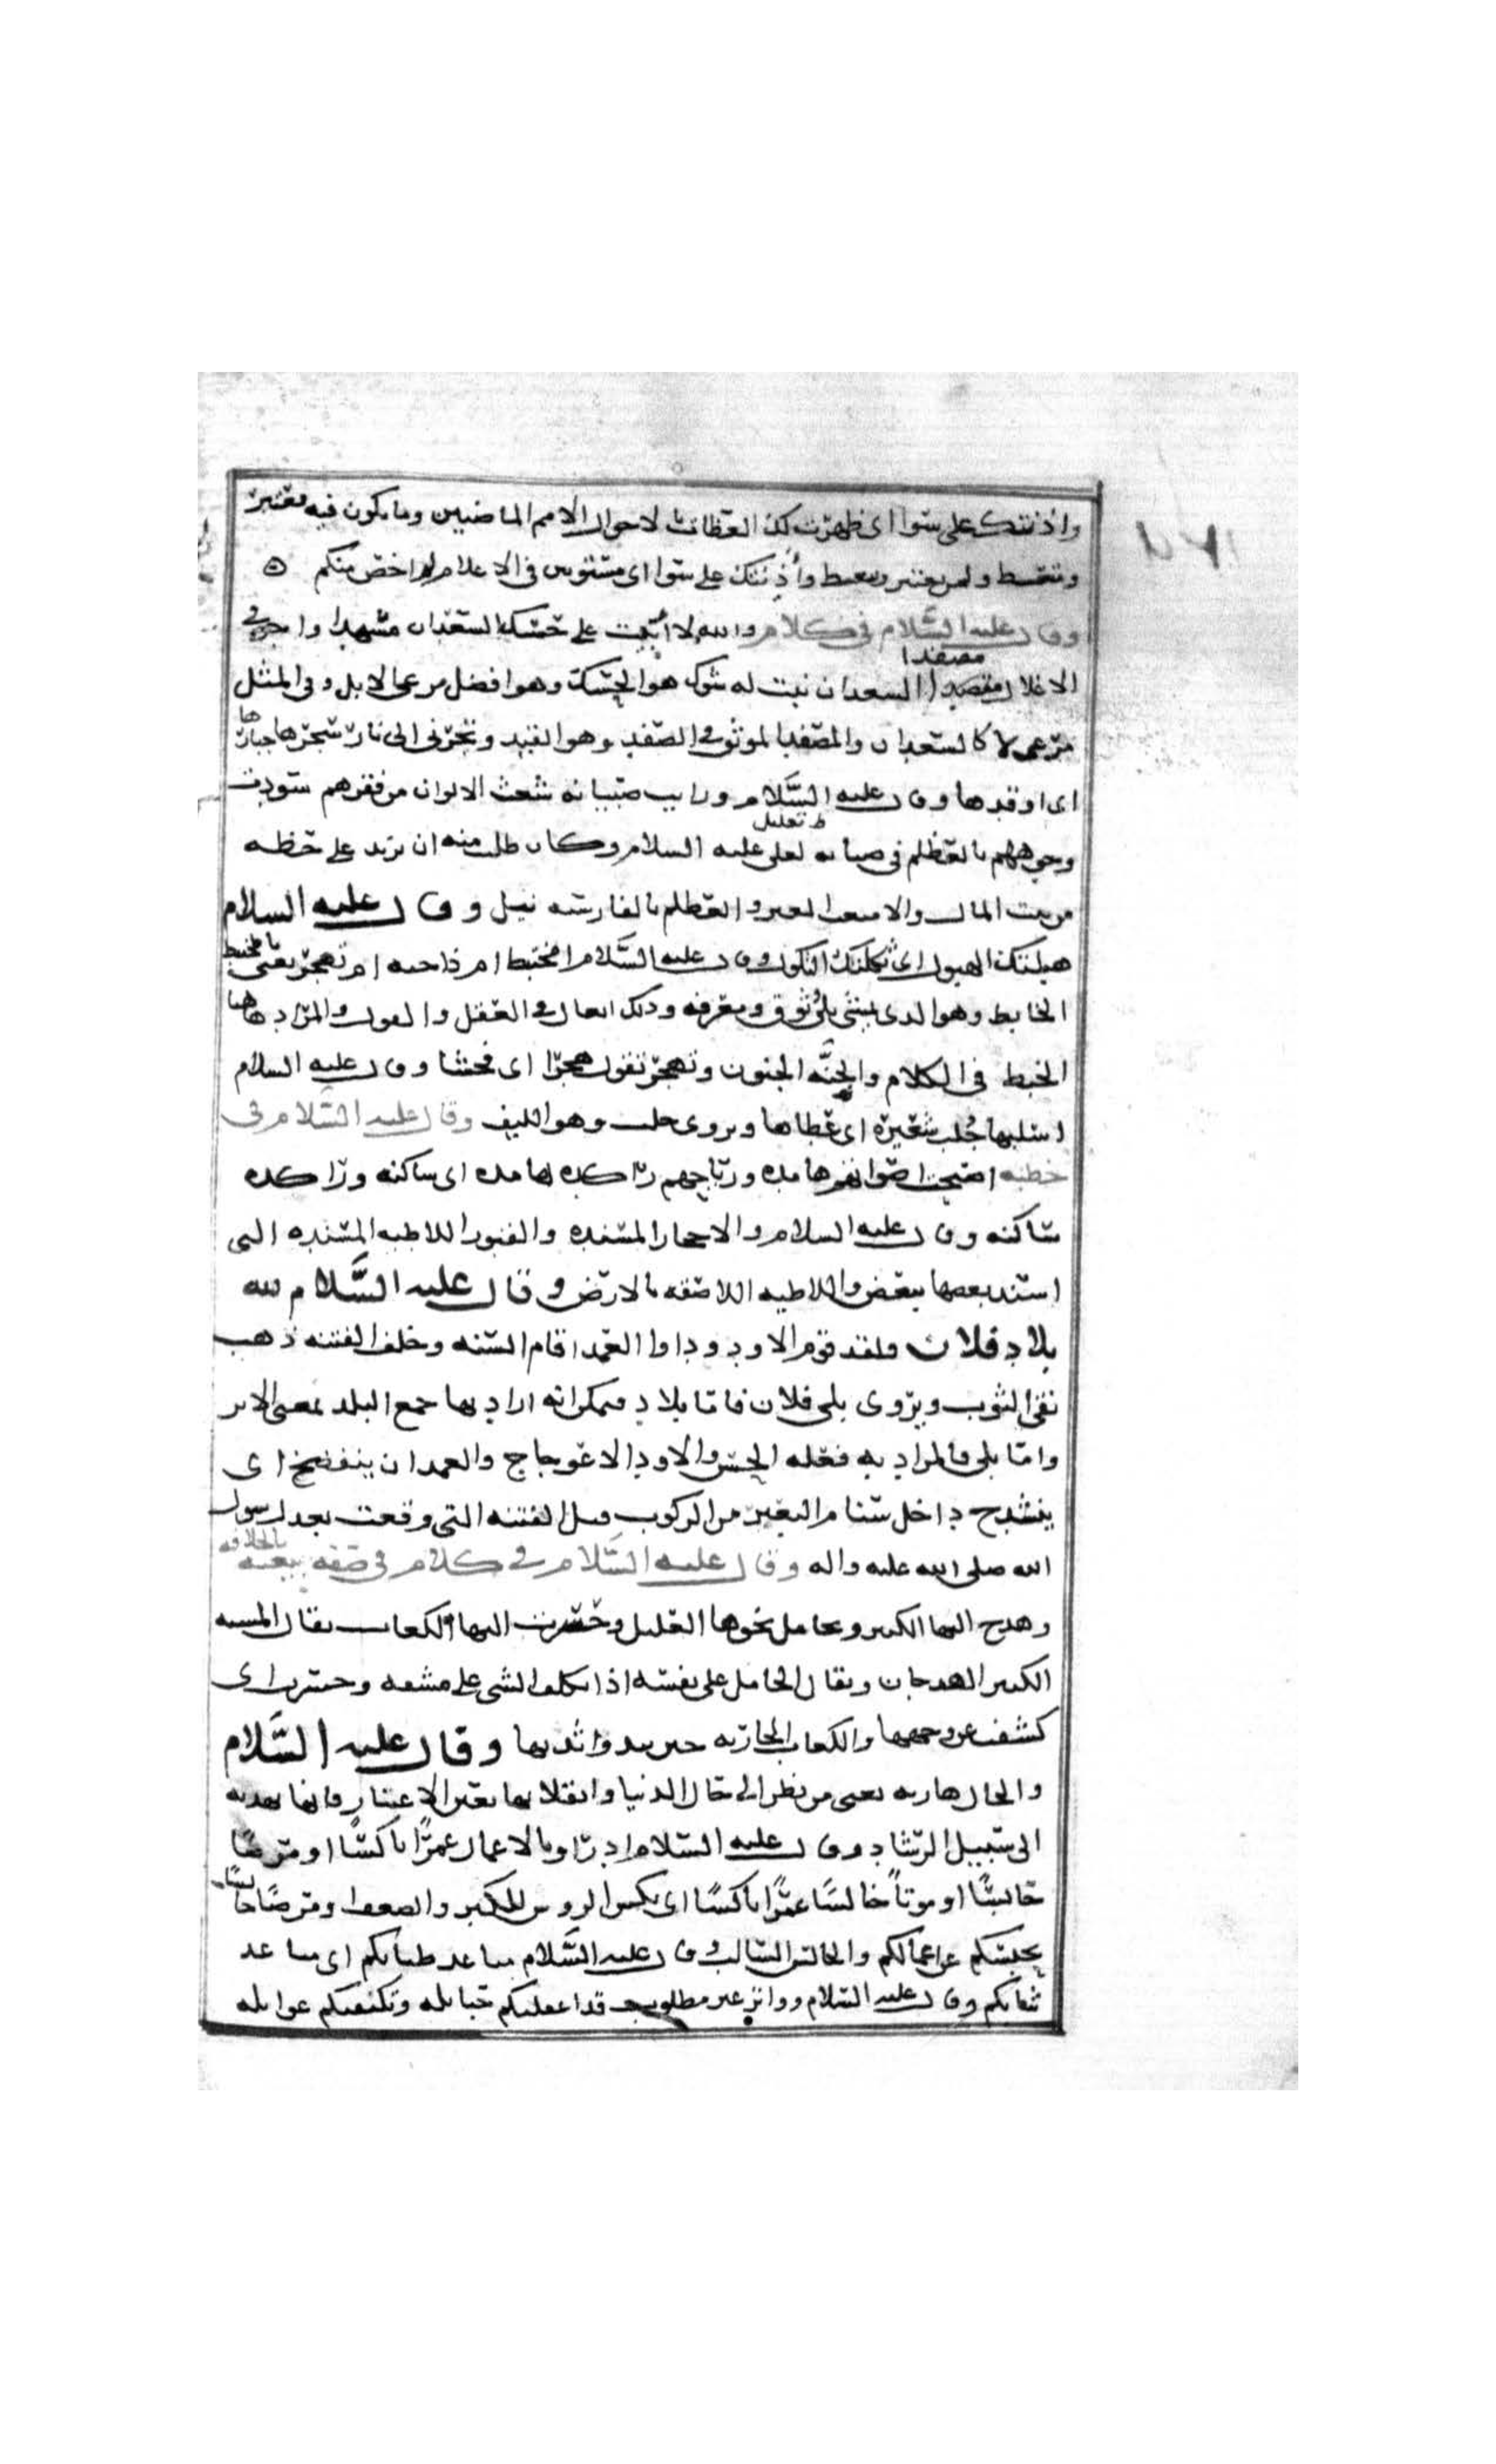 واذنتك على سوا اى ظهرت لك العظات لاحوال الامم الماضيين وما يكون فيه معتبر
ومتعظ ولمن يعتبر وىىعظ وأذنتك على سوا اى مستوين فى الاعلام لم اخص منكم
وقال عليه السلام فى كلام والله لا أبيت على حسك السعدان مسهدا واجر فى
مصفدا
الاغلال السعدان نبت له شوك هو الحسك وهو افضل مرعى الابل وفى المثل
مرعى ولا كالسعدان والمصفد الموثق فى الصفد وهو القيد وتجرنى الى نار سجرها جبارها
اى اوقدها وقال عليه السلام ورايت صبيانه شعث الالوان من فقرهم سودت
وجوههم بالعظلم فى عليه السلام وكان طلب منه ان يزيد على حظه
من بيت المال والعظلم بالفارسيه نيل وقال عليه السلام
هبلتك الهبول اى ثكلتك الثكول وقال عليه السلام امختبط ام ذا جنه ام تهجر يعنى بالمختبط
الخابط وهو الذى يمشى بلا توق ومعرفه وذلك فى العقل والقول والمراد هاهنا
الخبط فى الكلام والجنَّه الجنون وتهجر تقول هجرا اى فحشا وقال عليه السلام
اسلبها جُلب شعيرة اى غطاها ويروى حلب وهو الليف وقال عليه السلام فى
خطبه اصبحت اصواتهم هامده ورياحهم راكده هامده اى ساكنه وراكده
ساكنه وقال عليه السلام والاحجار المسنده والقبور اللاطيه المسنده التى
استند بعضها ببعض واللاطيه اللاصقه بالارض وقال عليه السلام لله
بلاد فلان ولقد قوم الاود وداوا العمد اقام السنه وخلف الفتنه ذهب
نقى الثوب ويروى بلى فلان فاما بلاد فيمكن انه اراد بها جمع البلد بمعنى الاثر
واما بلى فالمراد به فعله الحسن والاود الاعوجاج والعمد ان ينفضخ اى
ينشدح داخل سنام البعير من الركوب الفتنه التى وقعت بعد رسول
الله صلى الله عليه واله وقال عليه السلام فى كلام فى صفه بيعته بالخلافه
وهدج اليها الكبير وتحامل نحوها العليل وحسرت اليها الكعاب يقال لمشيه
الكبير الهدجان ويقال تحامل على نفسه اذا تكلف الشى على مشقه وحسرت اى
كشفت عن وجهها والكعاب الجاريه حين يبدوا ثديها وقال عليه السلام
والحال هاديه يعنى من نظر الى حال الدنيا وانقلابها بعين الاعتبار فانها تهديه
الى سبيل الرشاد وقال عليه السلام بادروا بالاعمال عمرًا ناكسًا او مرضًا
حابسًا او موتًا خالسًا عمرًا ناكسًا اى ينكس الروس للكبر والضعف ومرضًا حابسًا
يحبسكم عن اعمالكم والخالس السالب وقال عليه السلام مباعد طياتكم اى مباعد
نياتكم وقال عليه السلام وواتر غير مطلوب قد اعلقتكم حبايله وتكنفتكم غوايله